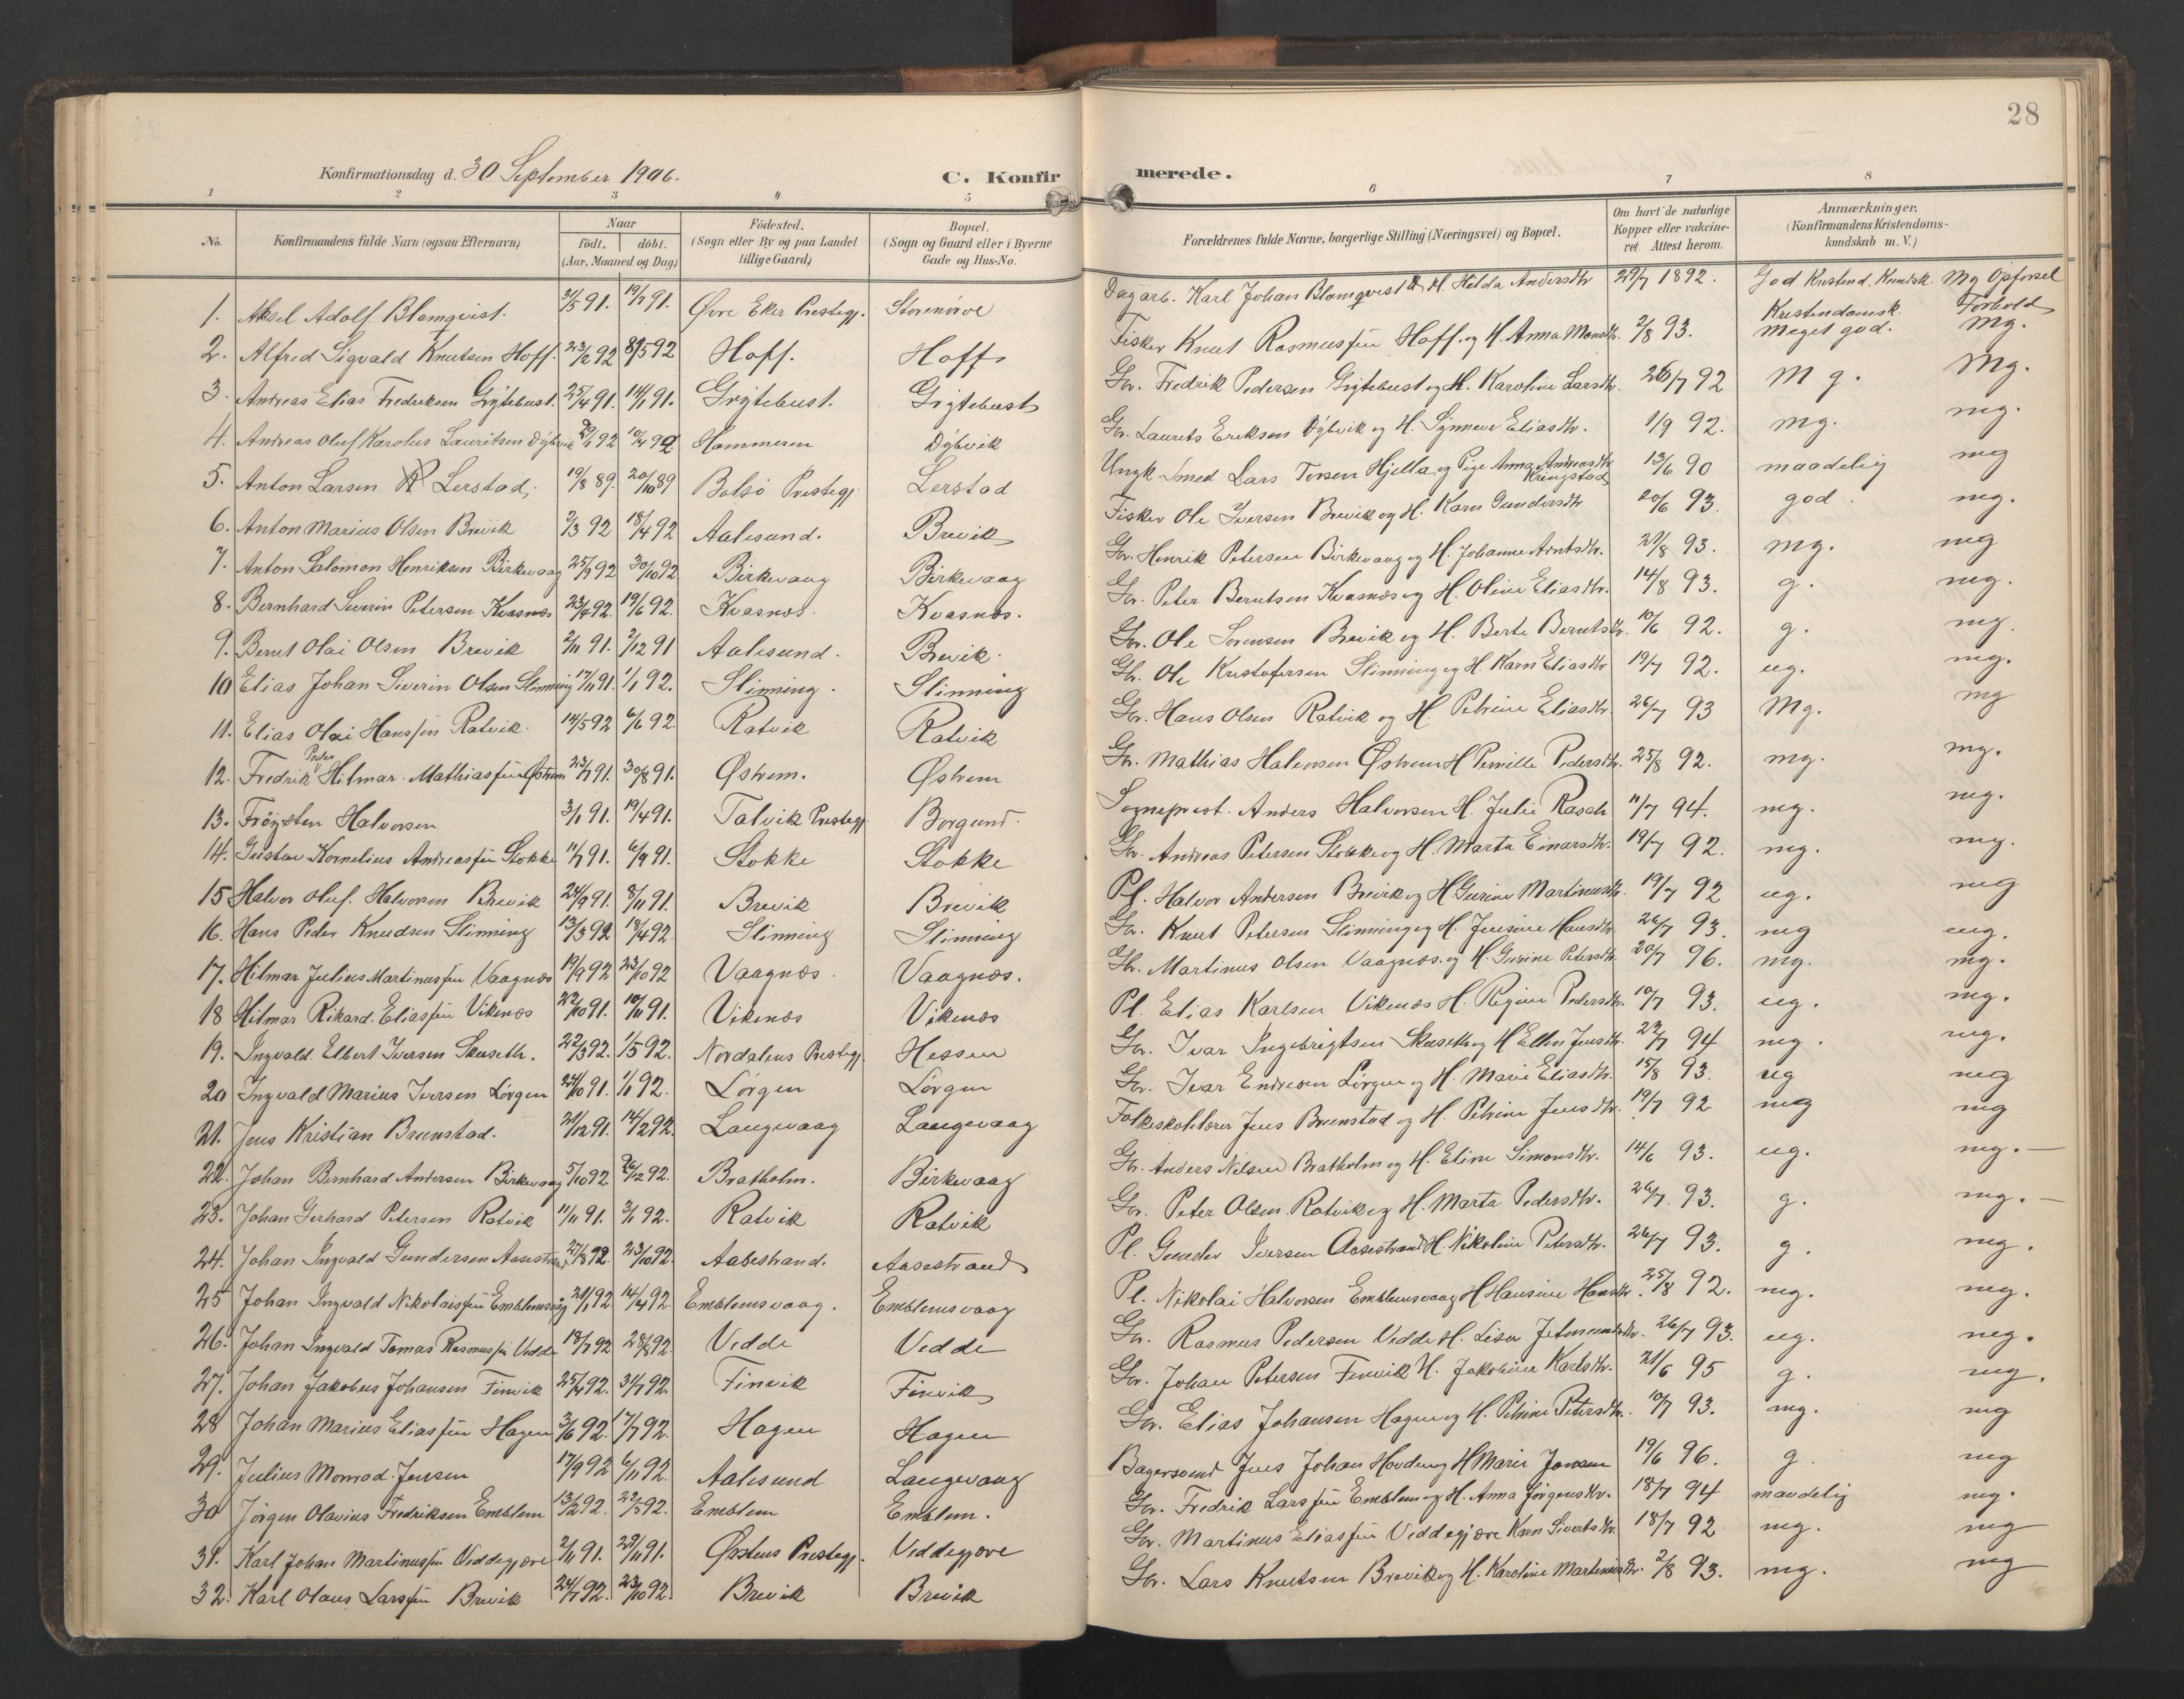 28
Konfirmationsdag d. 30 September 1906.
C. Konfirmerede.
1 2 3 4 5 6 7 8
No. Konfirmandens fulde Navn (ogsaa Efternavn) Naar født. døbt. (Aar, Maaned og Dag) Födested. (Sogn eller By og paa Landet tillige Gaard) Bopæl. (Sogn og Gaard eller i Byerne Gade og Hus-No. Forældrenes fulde Navne, borgerlige Stilling (Næringsvei) og Bopæl. Om havt de naturlige Kopper eller vakcineret. Attest herom. Anmærkninger. (Konfirmandens Kristendomskundskab m. V.)
1. Aksel Adolf Blomqvist. 31/5 91. 19/7 91. Øvre Eker Prestegj. Storenørve Dagarb. Karl Johan Blomqvist H. Hilda Andersdtr 29/7 1892. God Kristend. Kundsk. Mg Opførsel
2. Alfred Sigvald Knutsen Hoff. 23/2 92 8/5 92 Hoff. Hoff Fisker Knut Rasmussøn Hoff. og H. Anna Monsdtr. 2/8 93. Kristendomsk. meget god. Forhold mg.
3. Andreas Elias Fredriksen Grytebust. 25/4 91. 14/ 91. Grytebust. Grytebust Gr. Fredrik Pedersen Grytebust og H. Karoline Larsdtr. 26/7 92 Mg. Mg.
4. Andreas Oluf Karolus Lauritsen Dybvik 29/1 92 10/4 92 Hammeren Dybvik Gr. Laurits Eriksen Dybvik og H. Synneve Eliasdtr. 1/9 92. mg. mg.
5. Anton Larsen Lerstad. 19/8 89. 20/10 89 Bolsø Prestegj. Lerstad Ungk. Smed Lars Torsen Hjella og Pige Anna Andreasdtr Kringstad 13/6 90 maadelig mg
6. Anton Marius Olsen Brevik 2/3 92 18/4 92 Aalesund. Brevik Fisker Ole Iversen Brevik og H. Karn Gundersdtr 20/6 93. god. mg.
7. Anton Salomon Henriksen Birkevaag 25/9 92 30/10 92 Birkevaag Birkevaag Gr. Henrik Petersen Birkevaag og H. Johanne Arntsdtr. 21/8 93. mg. mg
8. Bernhard Severin Petersen Kvasnes 23/4 92. 19/6 92. Kvasnes. Kvasnes. Gr. Peter Berntsen Kvasnes og H. Oline Eliasdtr. 14/8 93. g. mg.
9. Bernt Olai Olsen Brevik 2/11 91. 2/12 91 Aalesund. Brevik. Gr. Ole Sørensen Brevik og H. Berte Berntsdtr. 10/6 92. g. mg.
10 Elias Johan Severin Olsen Slinning 17/11 91. 1/1 92. Slinning. Slinning Gr. Ole Kristofersen Slinning og H. Karn Eliasdtr 19/7 92. ug. mg.
11. Elias Olai Hanssøn Ratvik. 14/5 92 6/6 92. Ratvik Ratvik Gr. Hans Olsen Ratvik og H. Petrine Eliasdtr. 26/7 93 Mg. mg
12. Fredrik Peder Hilmar Mathiassøn Østrem 23/7 91. 30/8 91. Østrem. Østrem Gr. Mathias Halvorsen Østrem H Pernille Pedersdtr. 25/8 92. mg. mg.
13. Frøysten Halvorsen 3/1 91. 19/4 91. Talvik Prestegj. Borgund. Sogneprest. Anders Halvorsen H. Julie Rasch 11/7 94. mg. mg.
14. Gustav Kornelius Andreassøn Stokke 11/7 91. 6/9 91. Stokke Stokke Gr. Andreas Petersen Stokke og H. Marta Einarsdtr. 19/7 92. mg. mg.
15 Halvor Oluf. Halvorsen Brevik 24/9 91. 8/11 91. Brevik Brevik Pl. Halvor Andersen Brevik og H Gurine Martinusdtr. 19/7 92 ug. mg
16. Hans Peder Knudsen Slinning 13/3 92 18/4 92. Slinning Slinning Gr. Knut Petersen Slinning og H. Jensine Hansdtr. 26/7 93. mg ug.
17. Hilmar Julius Martinussøn Vaagnes 19/9 92 23/10 92 Vaagnes. Vaagnes. Gr. Martinus Olsen Vaagnes. og H. Gurine Petersdtr. 20/7 96. mg. mg.
18 Hilmar Rikard. Eliassøn Vikenes 22/10 91. 10/11 91. Vikenes Vikenes Pl. Elias Karlsen Vikenes H. Regine Pedersdtr. 10/7 93. ug. mg.
19. Ingvald Elbert Iversen Skuseth. 22/3 92. 1/5 92. Nordalens Prestegj. Hessen Gr. Ivar Ingebrigtsen Skuseth og H Ellen Jensdtr. 22/7 94 mg. mg.
20 Ingvald Marius Iversen Lørgen 24/10 91. 1/1 92. Lørgen Lørgen Gr. Ivar Endresen Lørgen og H. Marie Eliasdtr. 15/8 93. ug mg
21. Jens Kristian Brunstad. 21/12 91. 14/2 92. Langevaag Langevaag Folkeskolelærer Jens Brunstad og H. Petrine Jensdtr. 19/7 92 mg mg
22. Johan Bernhard Andersen Birkevaag 5/10 92 26/12 92. Bratholm. Birkevaag Gr. Anders Nilsen Bratholm og H. Eline Simonsdtr. 14/6 93. ug. mg. —
23. Johan Gerhard Petersen Ratvik 11/11 91. 3/1 92. Ratvik Ratvik Gr. Peter Olsen Ratvik og H. Marta Pedersdtr. 26/7. 93. g. mg. —
24. Johan Ingvald Gundersen Aasestrand 27/8 92. 23/10 92. Aasestrand. Aasestrand Pl. Gunder Iversen Aasestrand H. Nikoline Petersdtr. 26/7 93. g. mg.
25 Johan Ingvald Nikolaissøn Emblemsvåg 21/1 92. 14/4 92. Emblemsvaag. Emblemsvaag Pl. Nikolai Halvorsen Emblemsvaag H Hansine Hansdtr. 25/8 92. mg. mg.
26. Johan Ingvald Tomas Rasmussøn Vedde 18/7 92 28/8 92. Vedde Vedde Gr. Rasmus Pedersen Vedde H. Lisa Jetmundsdtr. 26/7 93. ug. mg.
27. Johan Jakobus Johansen Finvik 25/4 92. 31/7 92. Finvik Finvik Gr. Johan Petersen Finvik H. Jakobine Karlsdtr. 21/6 95 g. mg.
28 Johan Marius Eliassøn Hagen 3/6 92. 17/7 92. Hagen Hagen Gr. Elias Johansen Hagen og H. Petrine Petersdtr. 10/7 93. mg. mg
29. Julius Monrad Jensen 17/9 92 6/11 92. Aalesund Langevaag Bagersvend Jens Johan Hovden og H Marie Jonsen 19/6 96. g. mg
30 Jörgen Olavius Fredriksen Emblem 13/2 92. 22/5 92. Emblem Emblem. Gr. Fredrik Larssøn Emblem og H. Anna Jørgensdtr. 18/7 94 maadelig mg.
31. Karl Johan Martinussøn Veddegjære 2/11 91. 29/11 91. Ørstens Prestegj. Veddegjære Gr. Martinus Eliassøn Veddegjære Karn Sivertsdtr. 18/7 92 mg. mg
32. Karl Olaus Larssøn Brevik 24/7 92. 23/10 92. Brevik Brevik Gr. Lars Knutsen Brevik og H. Karoline Martinusdtr. 2/8 93. mg. mg